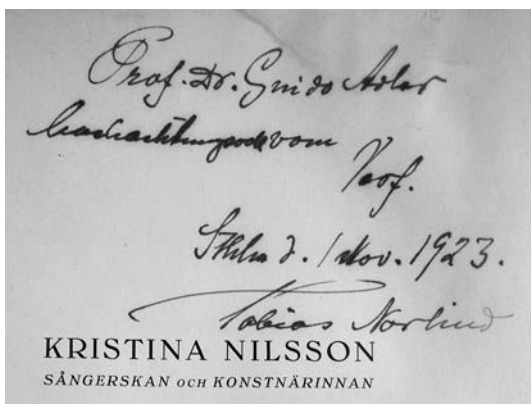 Prof. Dr. Guido Adler
hochachtungsvoll vom
Verf.
Sthlm d. 1 Nov. 1923.
Tobias Norlind
KRISTINA NILSSON
SÅNGERSKAN OCH KONSTNÄRINNAN